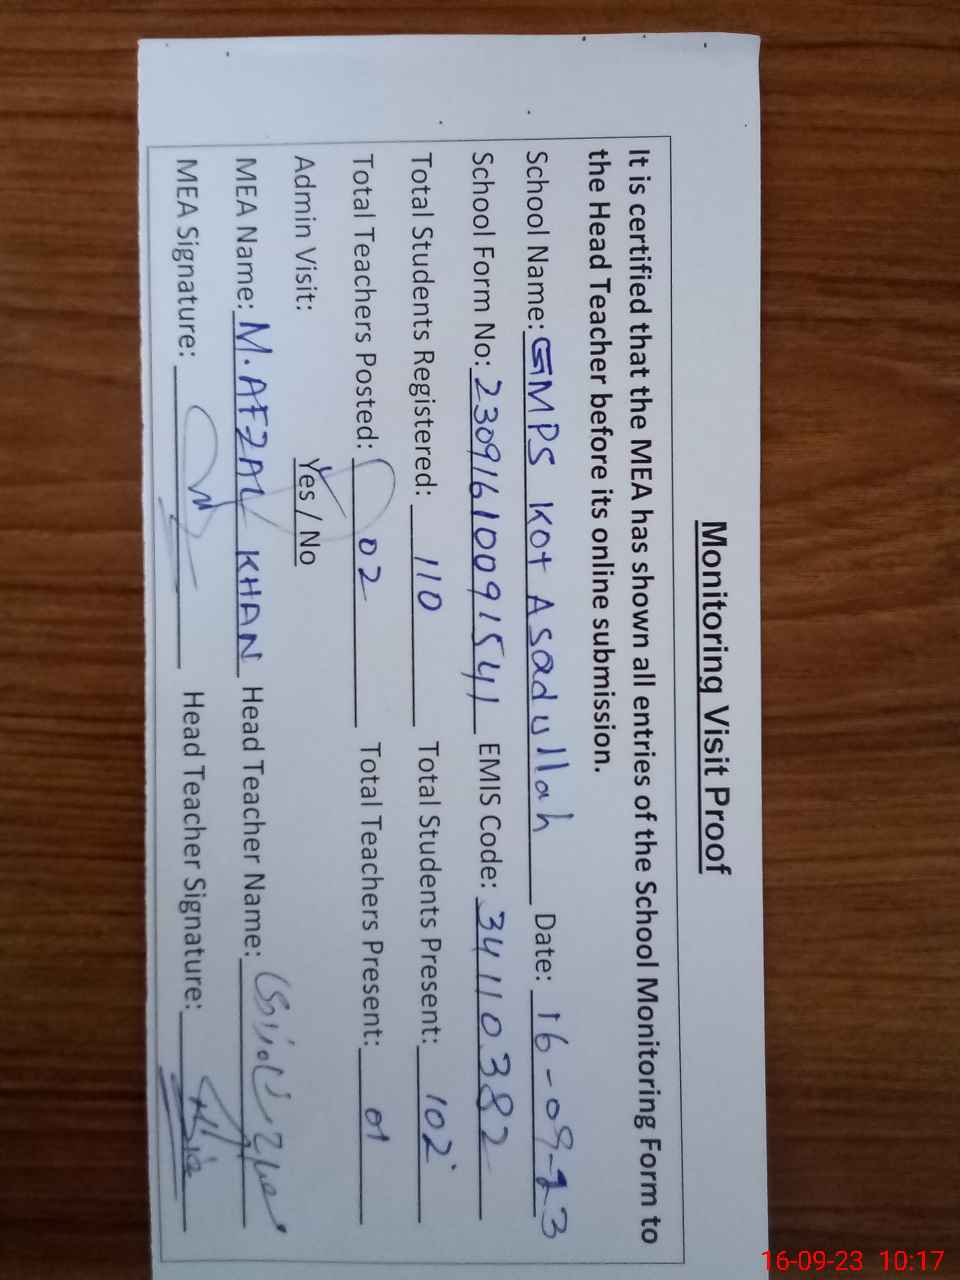 Monitoring Visit Proof
It is certified that the MEA has shown all entries of the School Monitoring Form to
the Head Teacher before its online submission.
School Name: GMPS Kot Asadullah Date: 16-09-23
School Form No: 23091610091541 EMIS Code: 34110382
Total Students Registered: 110 Total Students Present: 102
Total Teachers Posted: 02 Total Teachers Present: 01
Admin Visit: Yes / No
MEA Name: M. AFZAL KHAN Head Teacher Name:
MEA Signature: Head Teacher Signature:
16-09-23 10:17